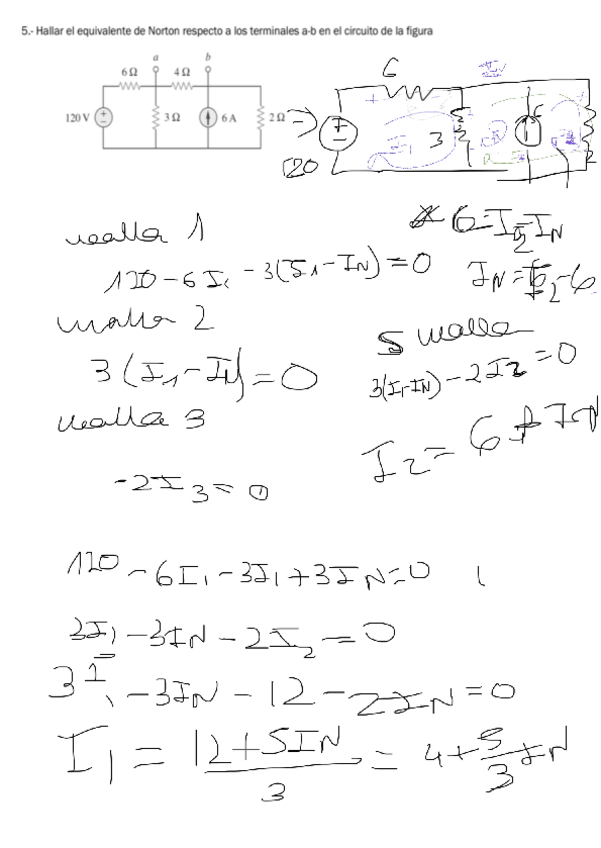 5.- Hallar el equivalente de Norton respecto a los terminales a-b en el circuito de la figura
a b
6 Ω 4 Ω
120 V 3 Ω 6 A 2 Ω
6
3
120
malla 1
120 - 6 I₁ - 3(I₁ - IN) = 0
6 = I₂ - IN
IN = I₂ - 6
malla 2
3 (I₁ - IN) = 0
S malla
3(I₁-IN) - 2I₂ = 0
malla 3
-2I₃ = 0
I₂ = 6 + IN
120 - 6I₁ - 3I₁ + 3IN = 0
3I₁ - 3IN - 2I₂ = 0
3I₁ - 3IN - 12 - 2IN = 0
I₁ = 12 + 5IN / 3 = 4 + 5/3 IN